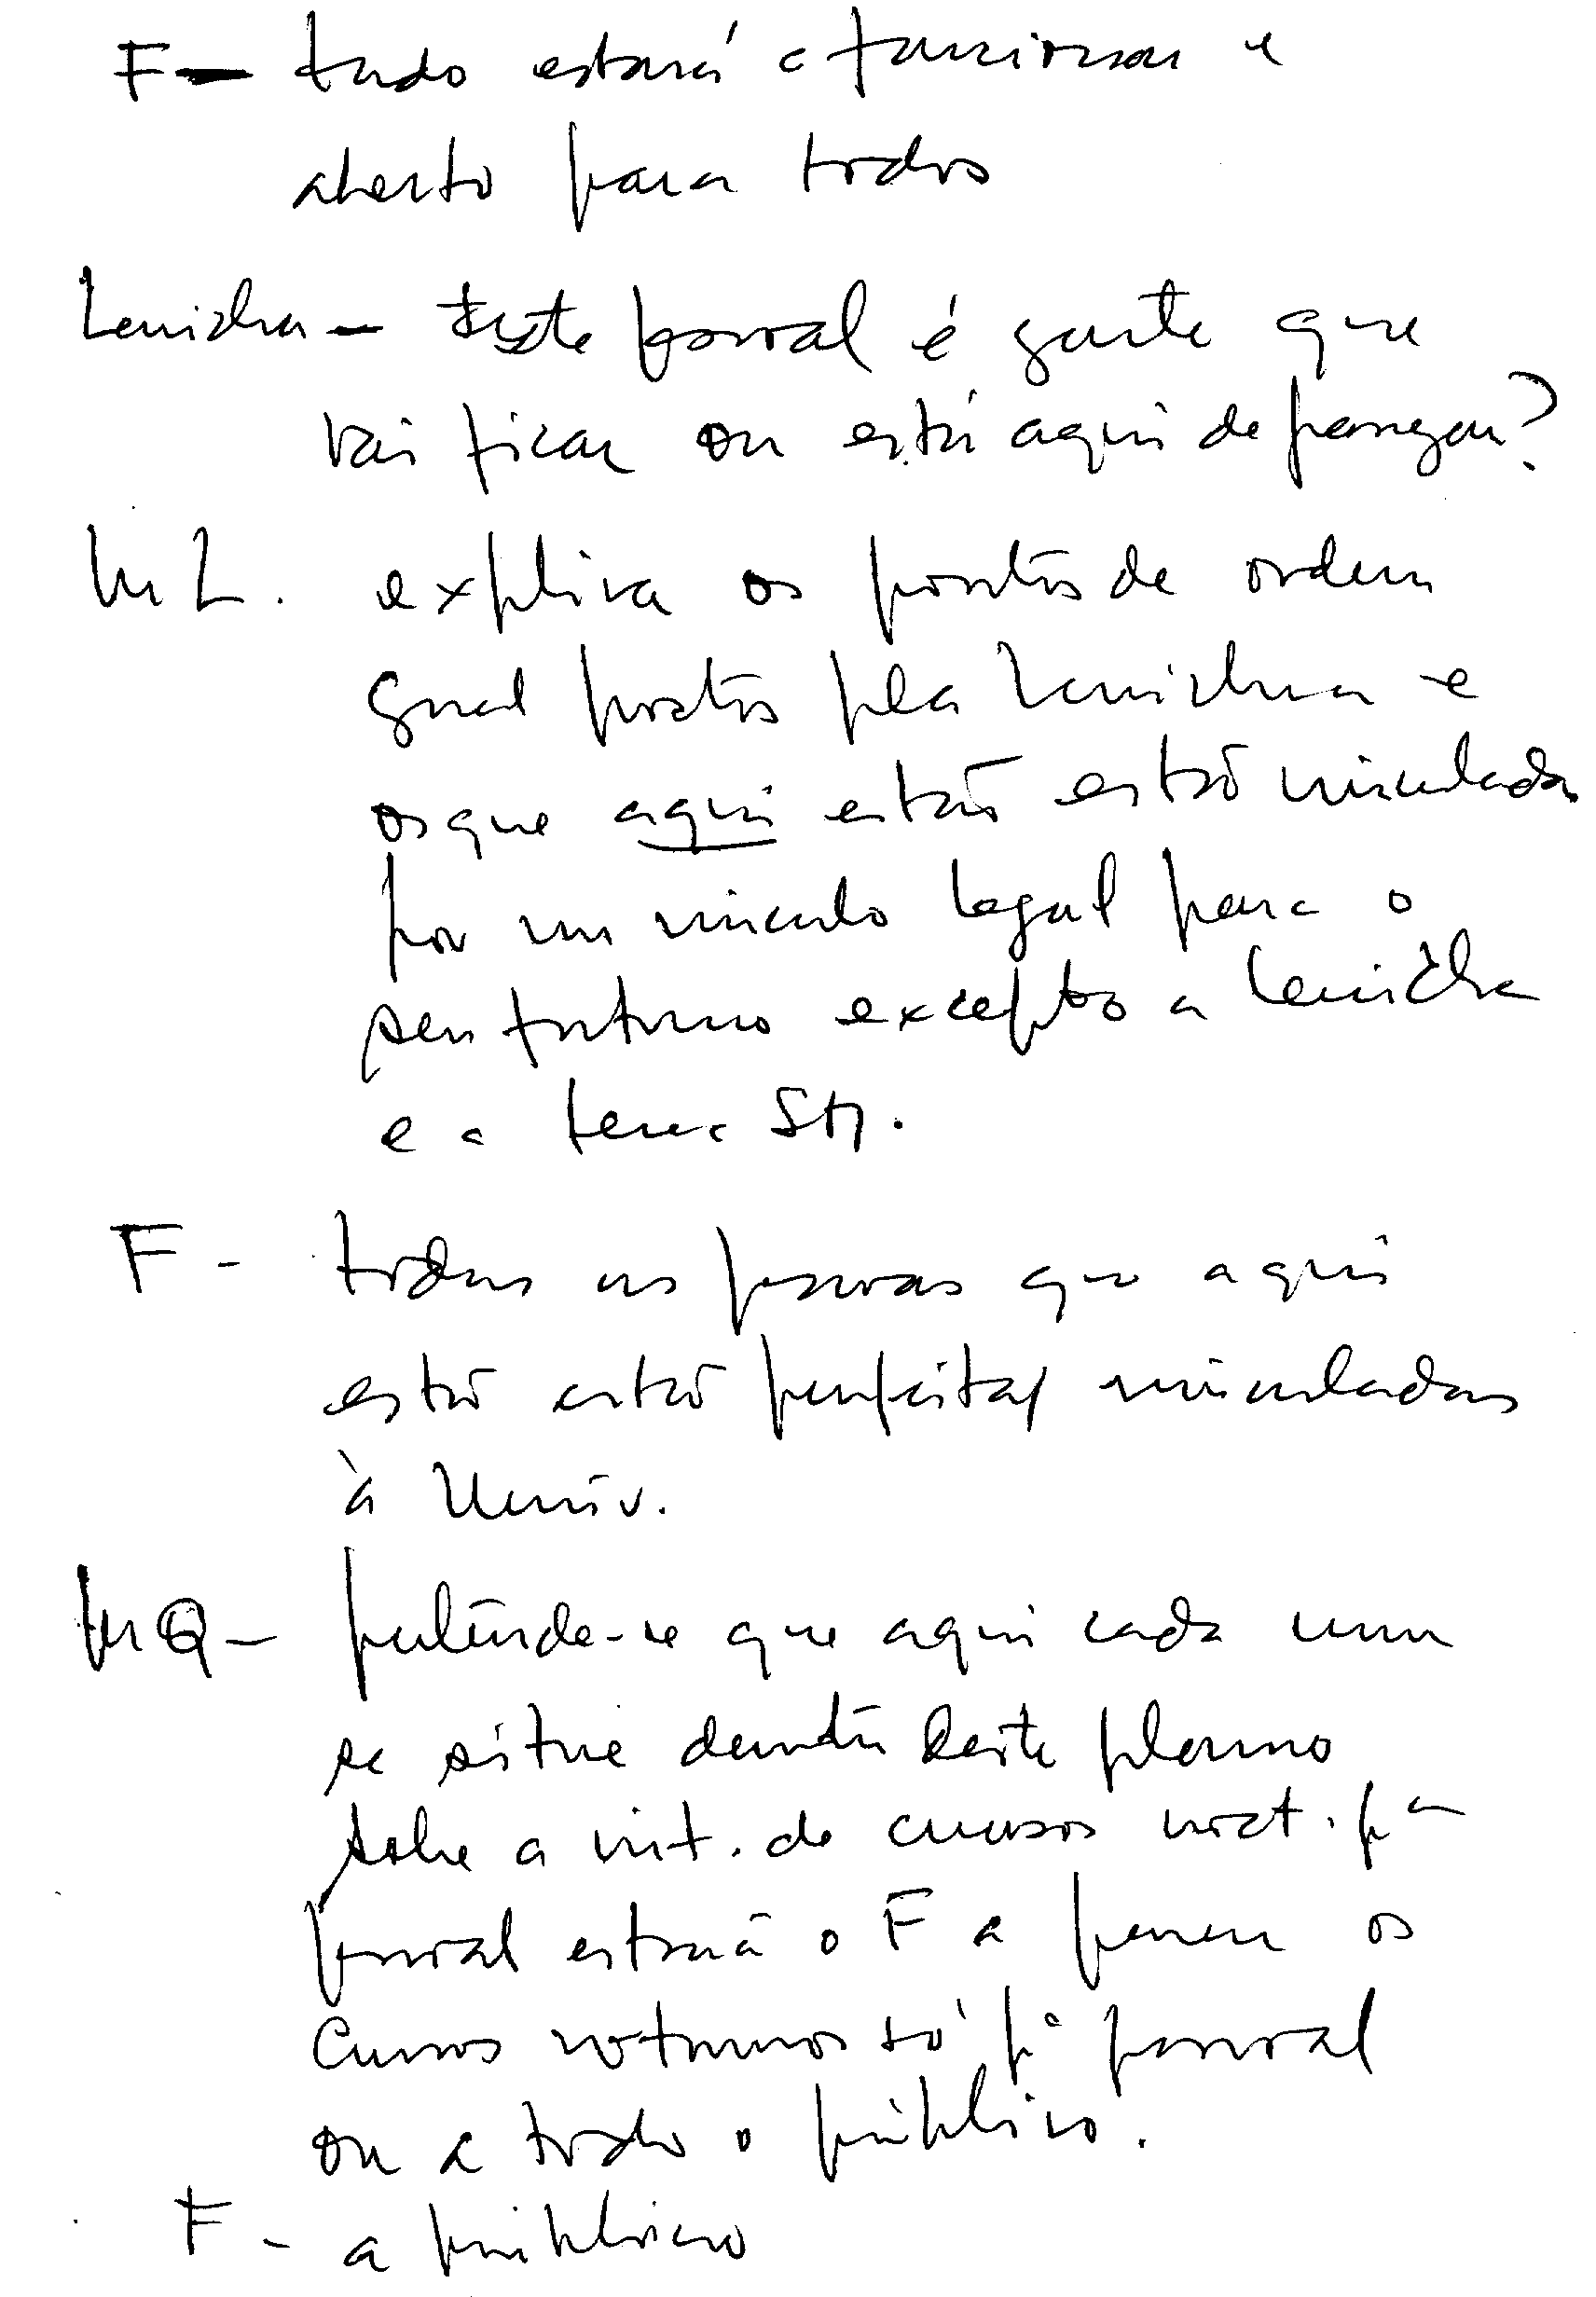 F — tudo estará a funcionar e
aberto para todos
Lenicha — este pessoal é gente que
vai ficar ou está aqui de passagem?
ML. explica os pontos de ordem
geral postos pela Lenicha e
os que aqui estão estão vinculados
por um vínculo legal para o
seu futuro excepto a Lenicha
e a
F - todas as pessoas que aqui
estão estão vinculadas
à Univ.
MQ — pretende-se que aqui cada um
se situe dentro deste plano
sobre a de cursos noct. pª
pessoal estará o F a pensar os
cursos nocturnos só pª pessoal
ou a todo o público.
F - a público